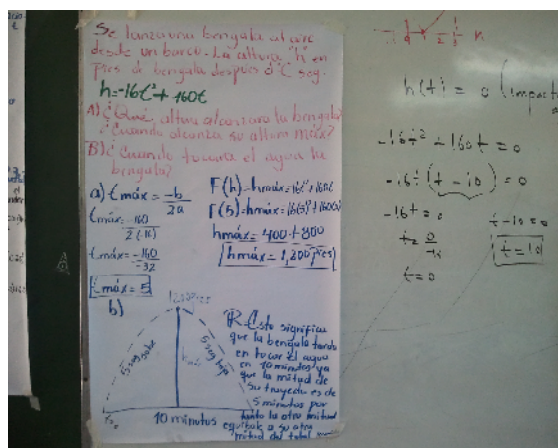 Se lanza una bengala al aire
desde un barco. La altura "h" en
pies de bengala despues d' t seg.
h=-16t²+160t
A) ¿Qué altura alcanzara la bengala?
¿Cuando alcanza su altura máx?
B) ¿Cuando tocara el agua la
bengala?
a) t máx = -b/2a
t máx = -160/2(-16)
t máx = -160/-32
t máx = 5
F(h)=hmáx=-16t²+160t
hmáx = 400 + 800
hmáx = 1,200 pies
b)
1200 pies
5 seg sube
5 seg baja
10 minutos
R- Esto significa
que la bengala tardo
en tocar el agua
en 10 minutos ya
que la mitad de
su trayecto es de
5 minutos por
tanto la otra mitad
equivale a su otra
mitad del total
h(t) = 0 (impacto
-16t² + 160t = 0
-16t (t - 10) = 0
-16t = 0
t = 0/-16
t = 0
t - 10 = 0
t = 10